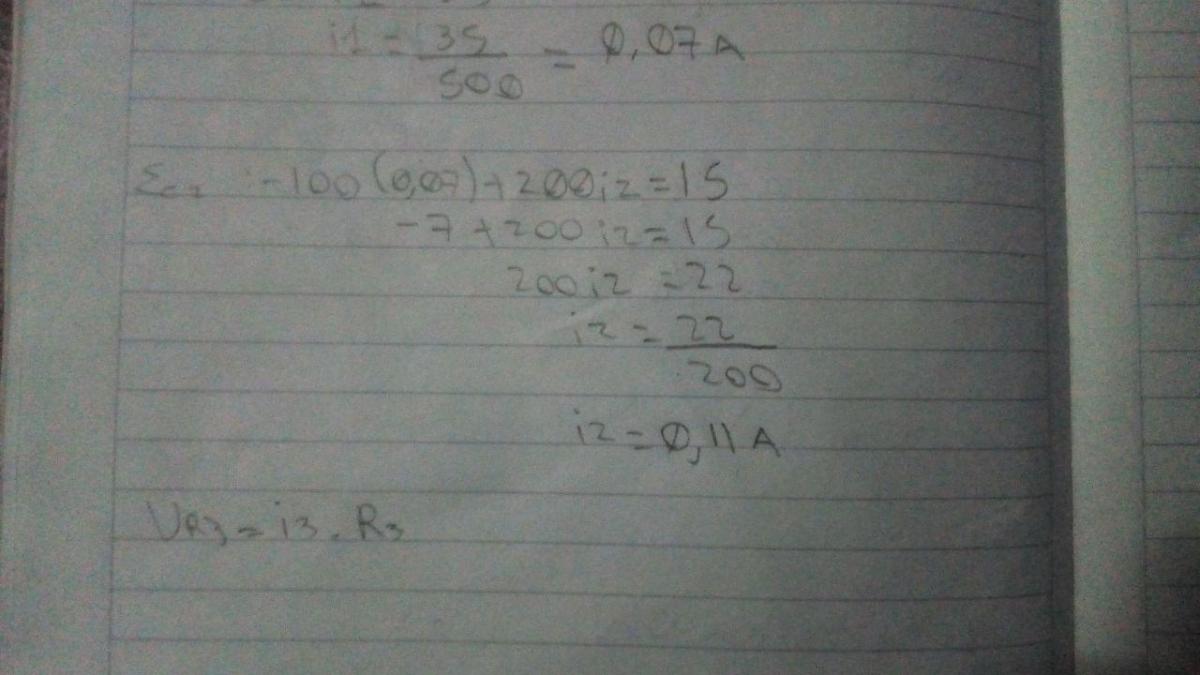 i1 = 35/500 = 0,07 A
Σc2 : -100 (0,07) + 200 i2 = 15
-7 + 200 i2 = 15
200 i2 = 22
i2 = 22/200
i2 = 0,11 A
UR3 = i3 . R3